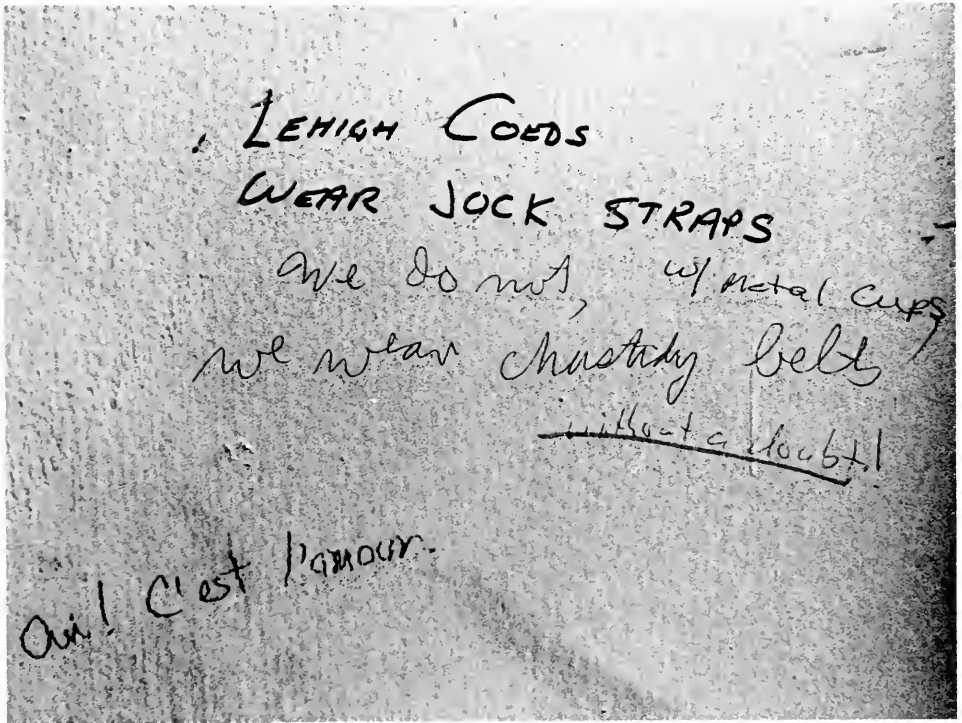 LEHIGH COEDS
WEAR JOCK STRAPS
w/ Metal Cups
We do not,
we wear chastidy belts
without a doubt!
Oui! C'est l'amour.